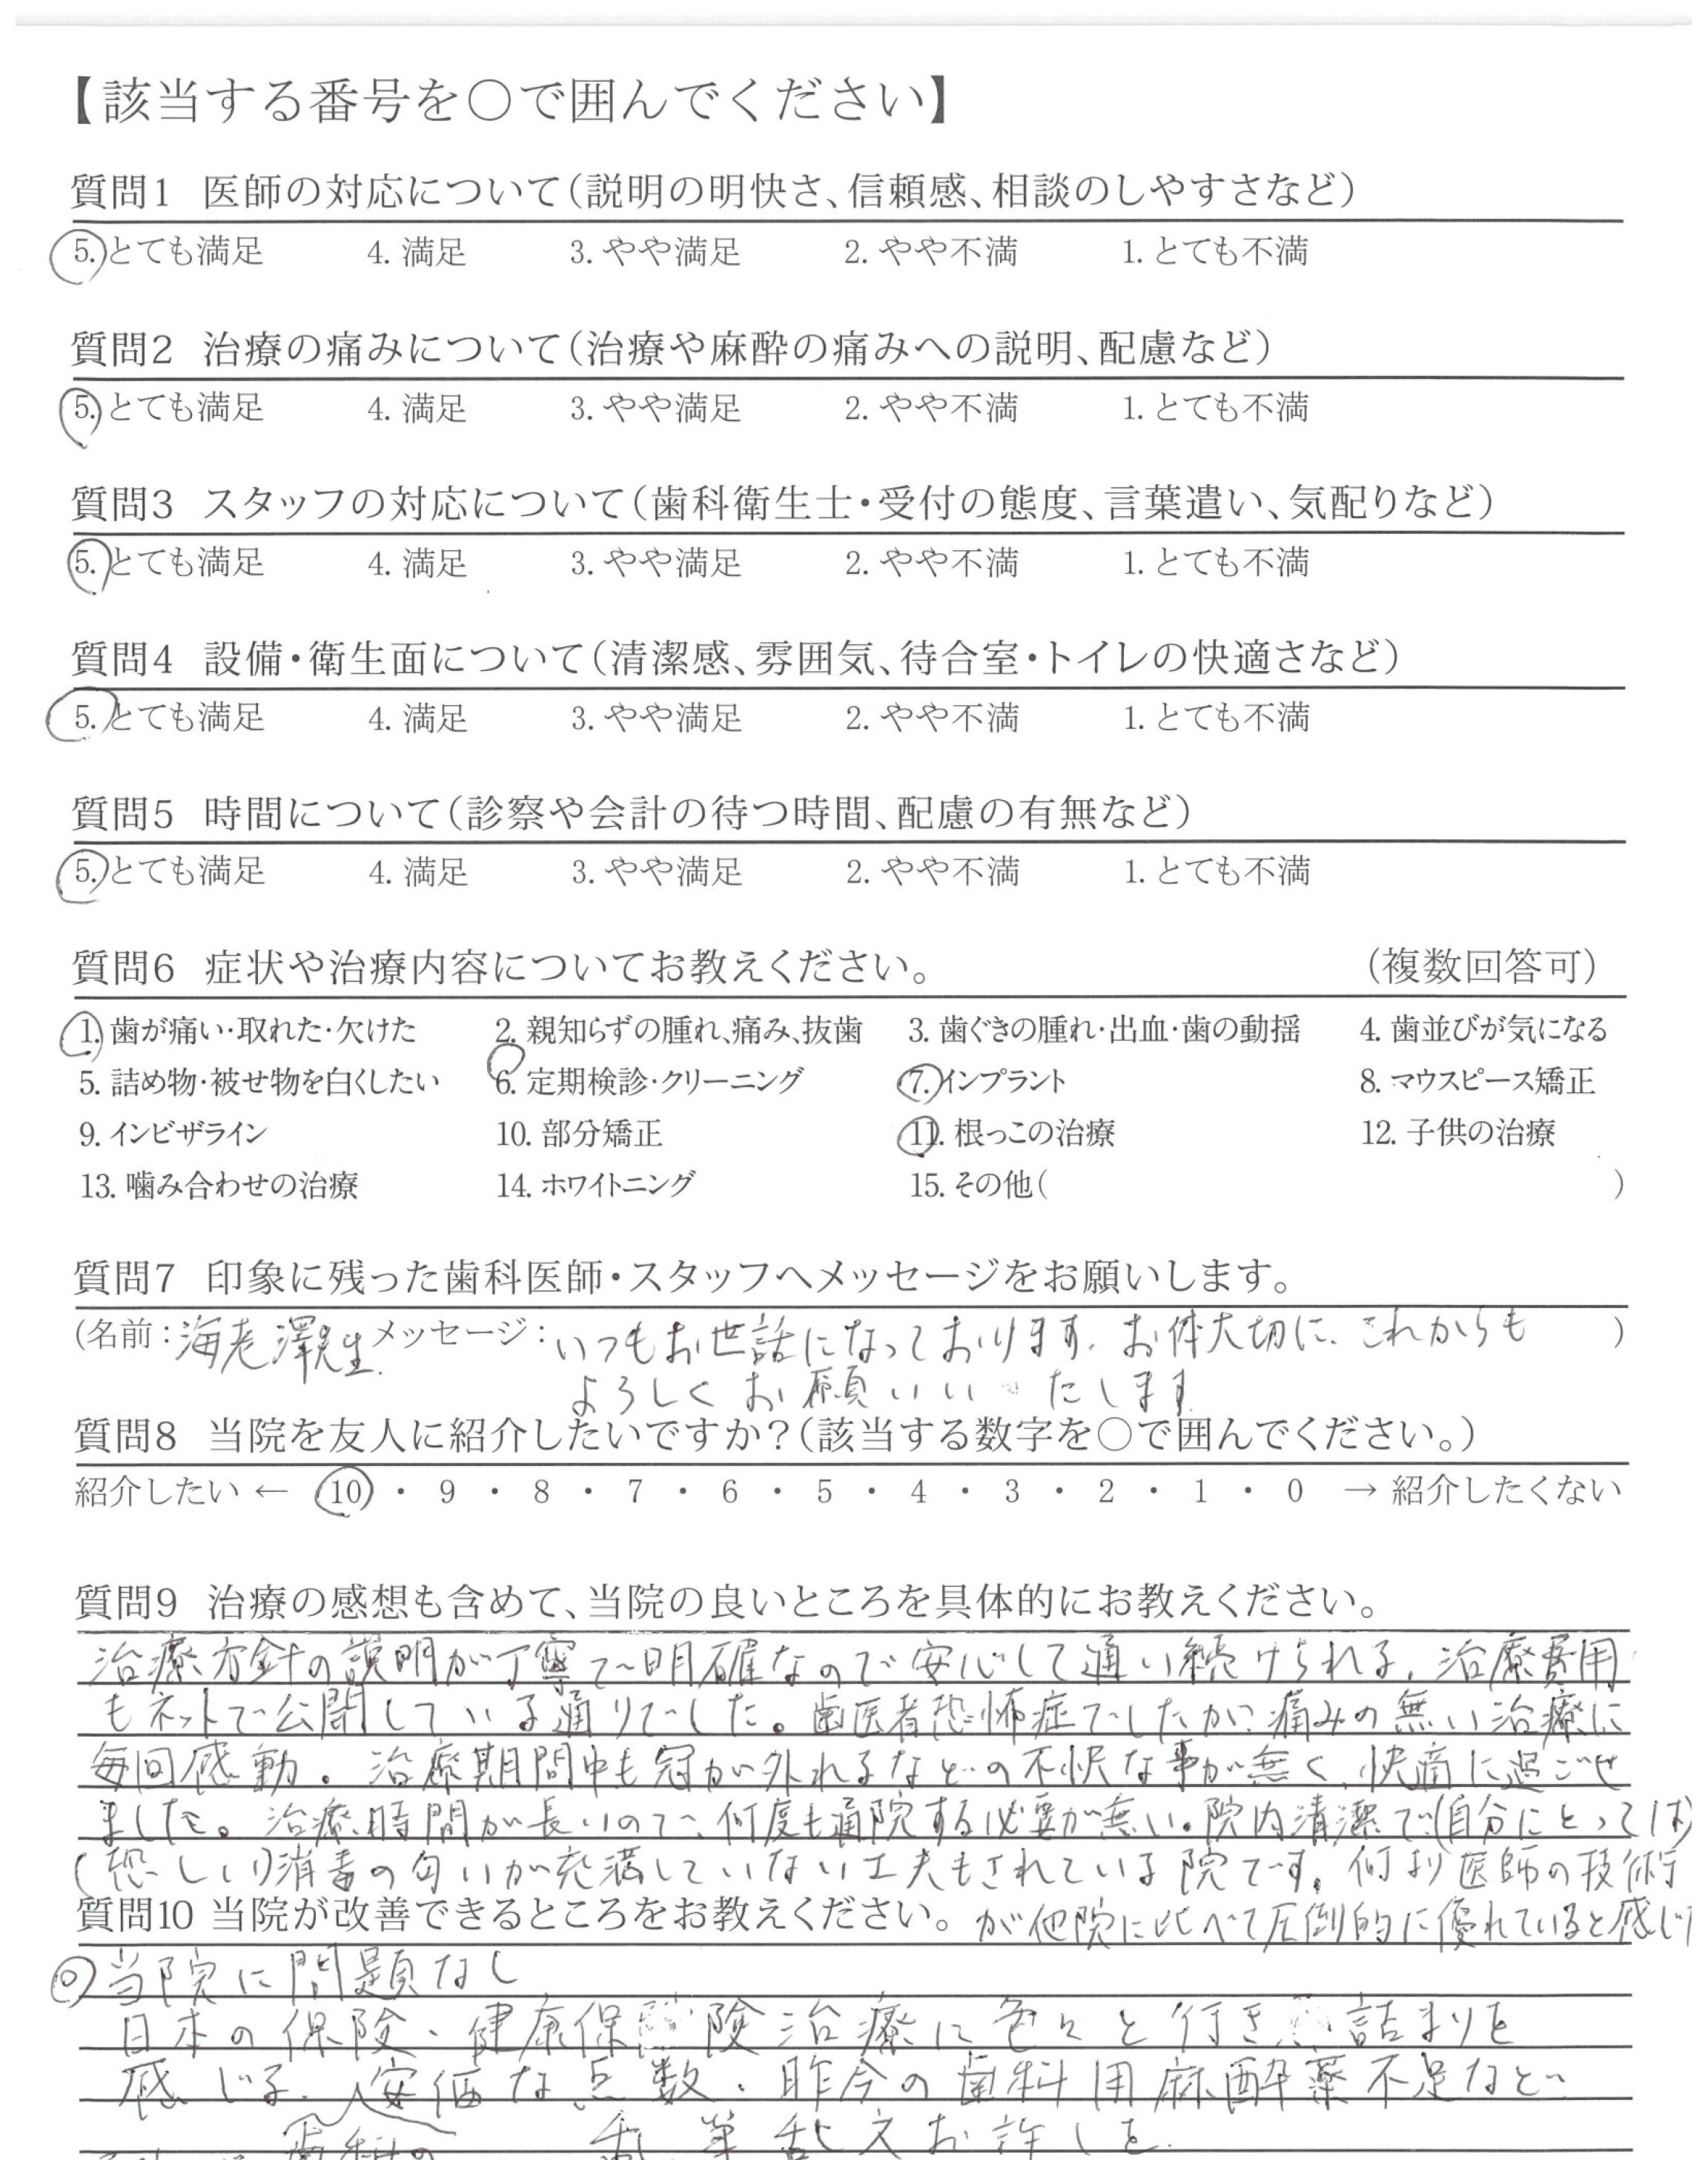 【該当する番号を○で囲んでください】
質問1 医師の対応について(説明の明快さ、信頼感、相談のしやすさなど)
5. とても満足 4. 満足 3. やや満足 2. やや不満 1. とても不満
質問2 治療の痛みについて(治療や麻酔の痛みへの説明、配慮など)
5. とても満足 4. 満足 3. やや満足 2. やや不満 1. とても不満
質問3 スタッフの対応について(歯科衛生士・受付の態度、言葉遣い、気配りなど)
5. とても満足 4. 満足 3. やや満足 2. やや不満 1. とても不満
質問4 設備・衛生面について(清潔感、雰囲気、待合室・トイレの快適さなど)
5. とても満足 4. 満足 3. やや満足 2. やや不満 1. とても不満
質問5 時間について(診察や会計の待つ時間、配慮の有無など)
5. とても満足 4. 満足 3. やや満足 2. やや不満 1. とても不満
質問6 症状や治療内容についてお教えください。 (複数回答可)
1. 歯が痛い・取れた・欠けた 2. 親知らずの腫れ、痛み、抜歯 3. 歯ぐきの腫れ・出血・歯の動揺 4. 歯並びが気になる
5. 詰め物・被せ物を白くしたい 6. 定期検診・クリーニング 7. インプラント 8. マウスピース矯正
9. インビザライン 10. 部分矯正 11. 根っこの治療 12. 子供の治療
13. 噛み合わせの治療 14. ホワイトニング 15. その他( )
質問7 印象に残った歯科医師・スタッフへメッセージをお願いします。
(名前:海老澤先生 メッセージ:いつもお世話になっております。お体大切に、これからも )
よろしくお願いいたします
質問8 当院を友人に紹介したいですか?(該当する数字を○で囲んでください。)
紹介したい ← 10 ・ 9 ・ 8 ・ 7 ・ 6 ・ 5 ・ 4 ・ 3 ・ 2 ・ 1 ・ 0 → 紹介したくない
質問9 治療の感想も含めて、当院の良いところを具体的にお教えください。
治療方針の説明が丁寧で明確なので安心して通い続けられる。治療費用
もネットで公開している通りでした。歯医者恐怖症でしたが、痛みの無い治療に
毎回感動。治療期間中も冠が外れるなどの不快な事が無く、快適に過ごせ
ました。治療時間が長いので、何度も通院する必要が無い。院内清潔で(自分にとっては)
(恐しい)消毒の匂いが充満していない工夫もされている院です。何より医師の技術
質問10 当院が改善できるところをお教えください。 が他院に比べて圧倒的に優れていると感じ
◎当院に問題なし
日本の保険、健康保険治療に色々と行き詰まりを
感じる。安価な点数、昨今の歯科用麻酔薬不足など
歯科の 乱筆乱文お許しを